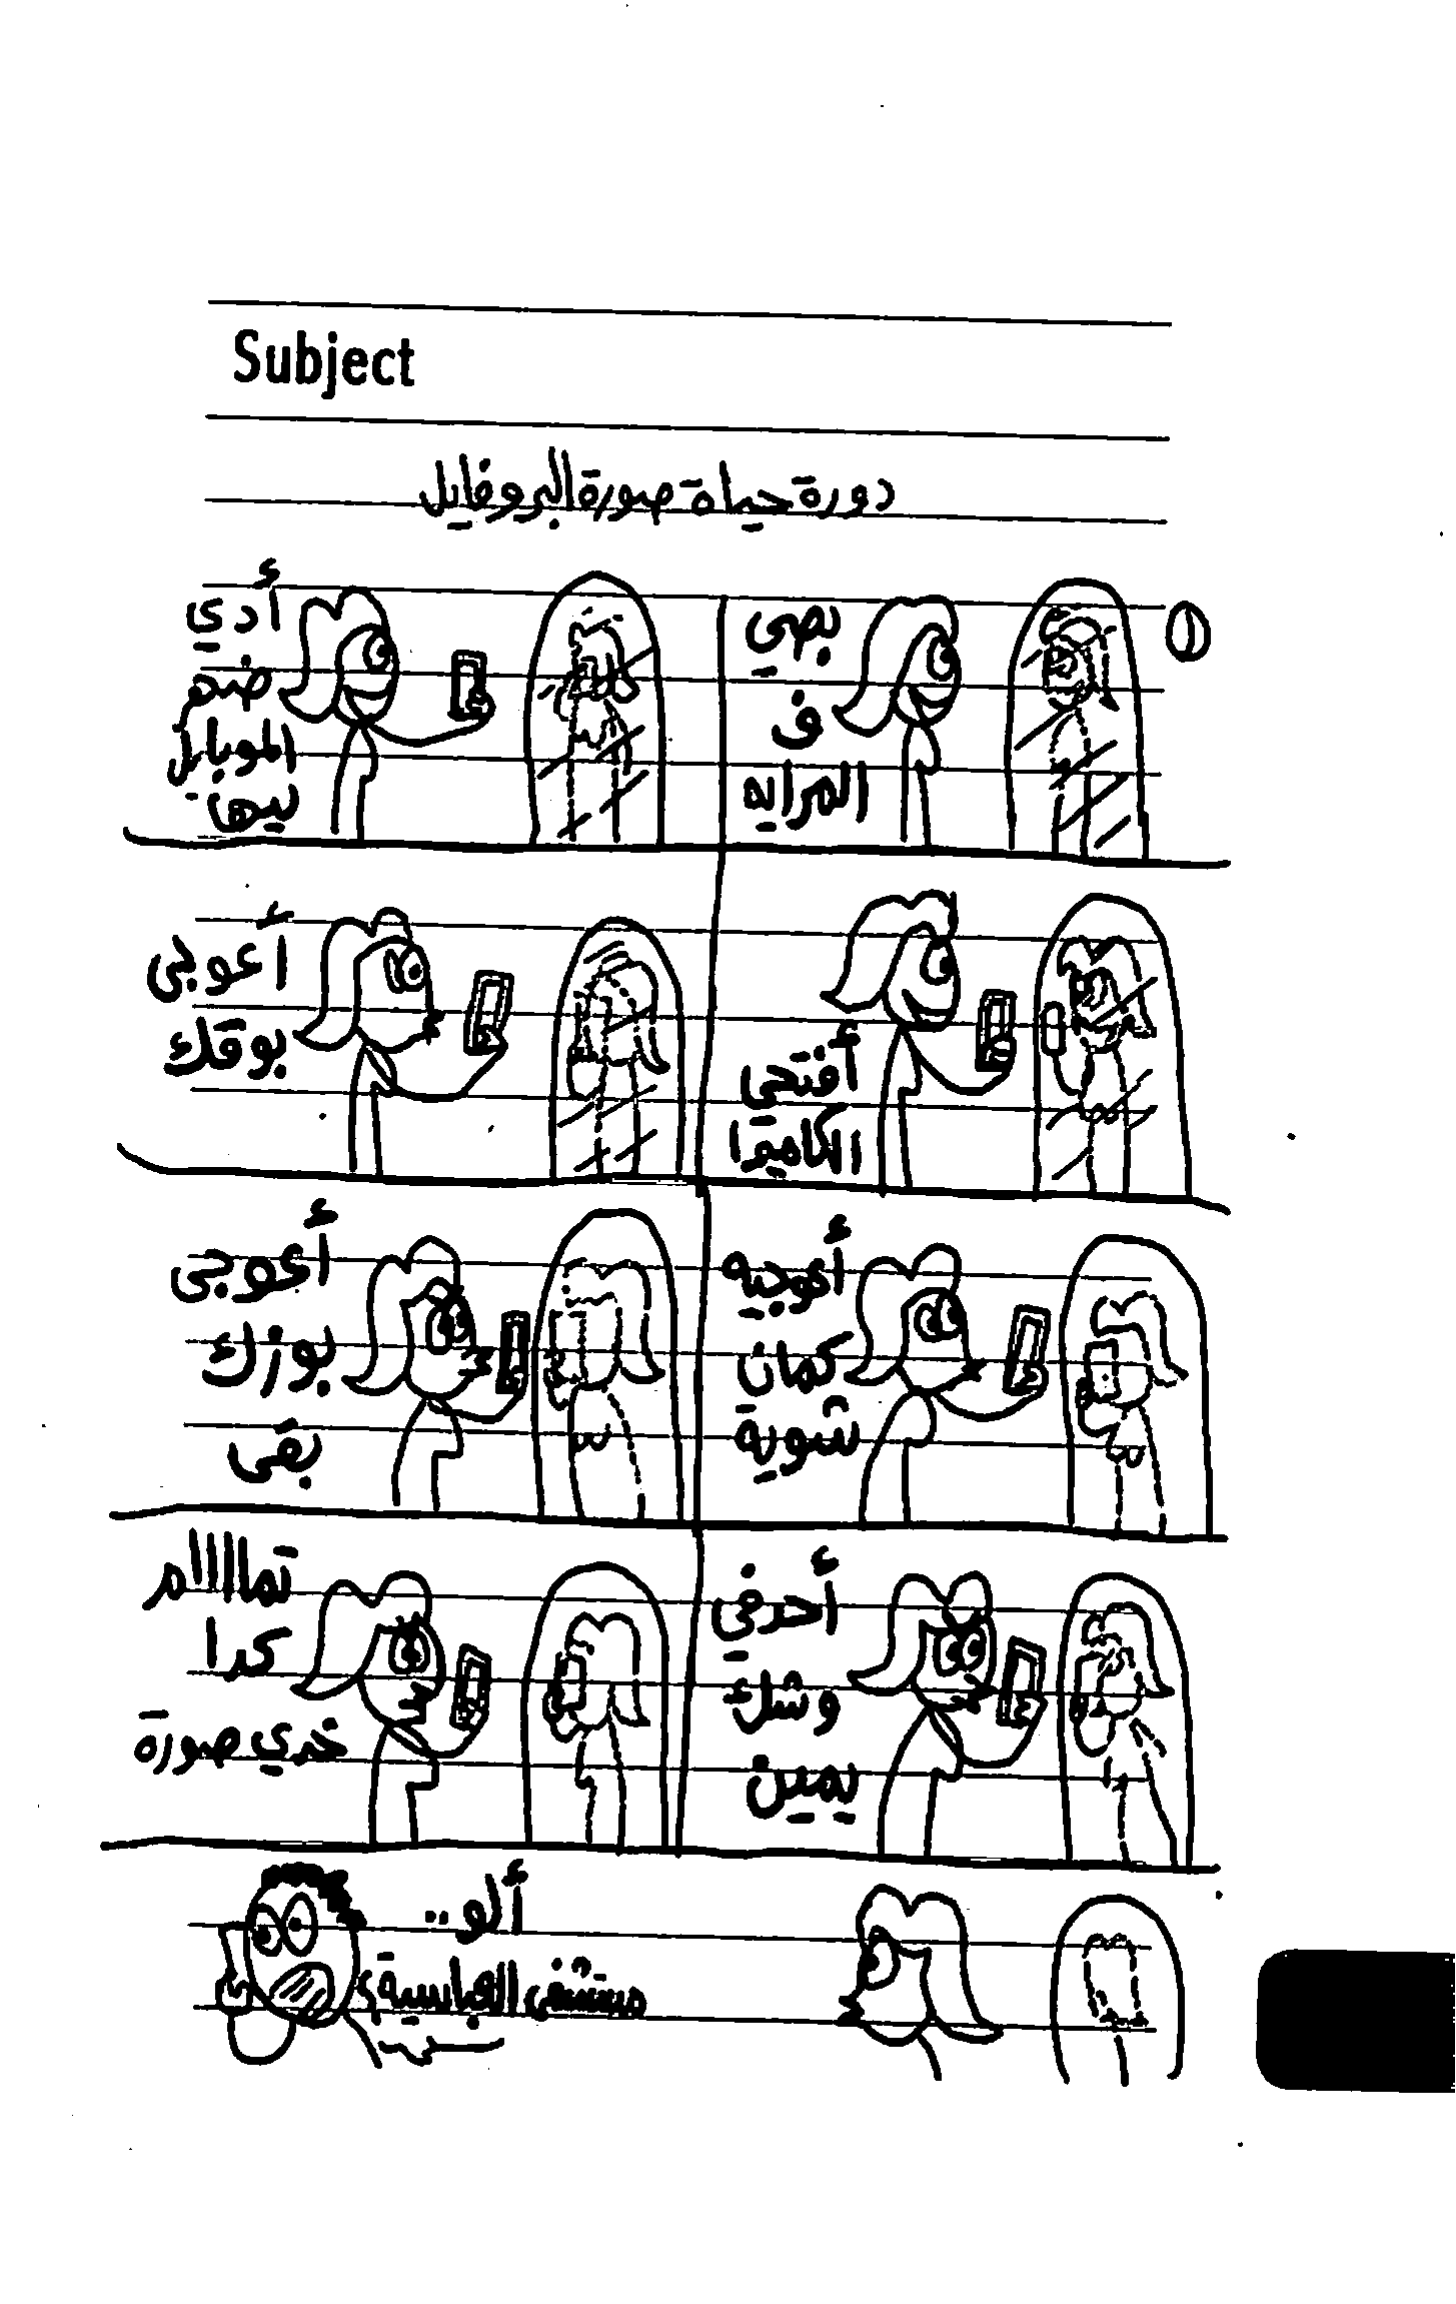 Subject
دورة حياة صورة البروفايل
①
بصي
ف
المرايه
أدي
ضهر
الموبايل
ليها
أفتحي
الكاميرا
أعوجي
بوقك
أعوجيه
كمان
شوية
أعوجى
بوزك
بقى
أحدفي
وشك
يمين
تمااااام
كدا
خدي صورة
ألو..
مستشفى العباسية؟